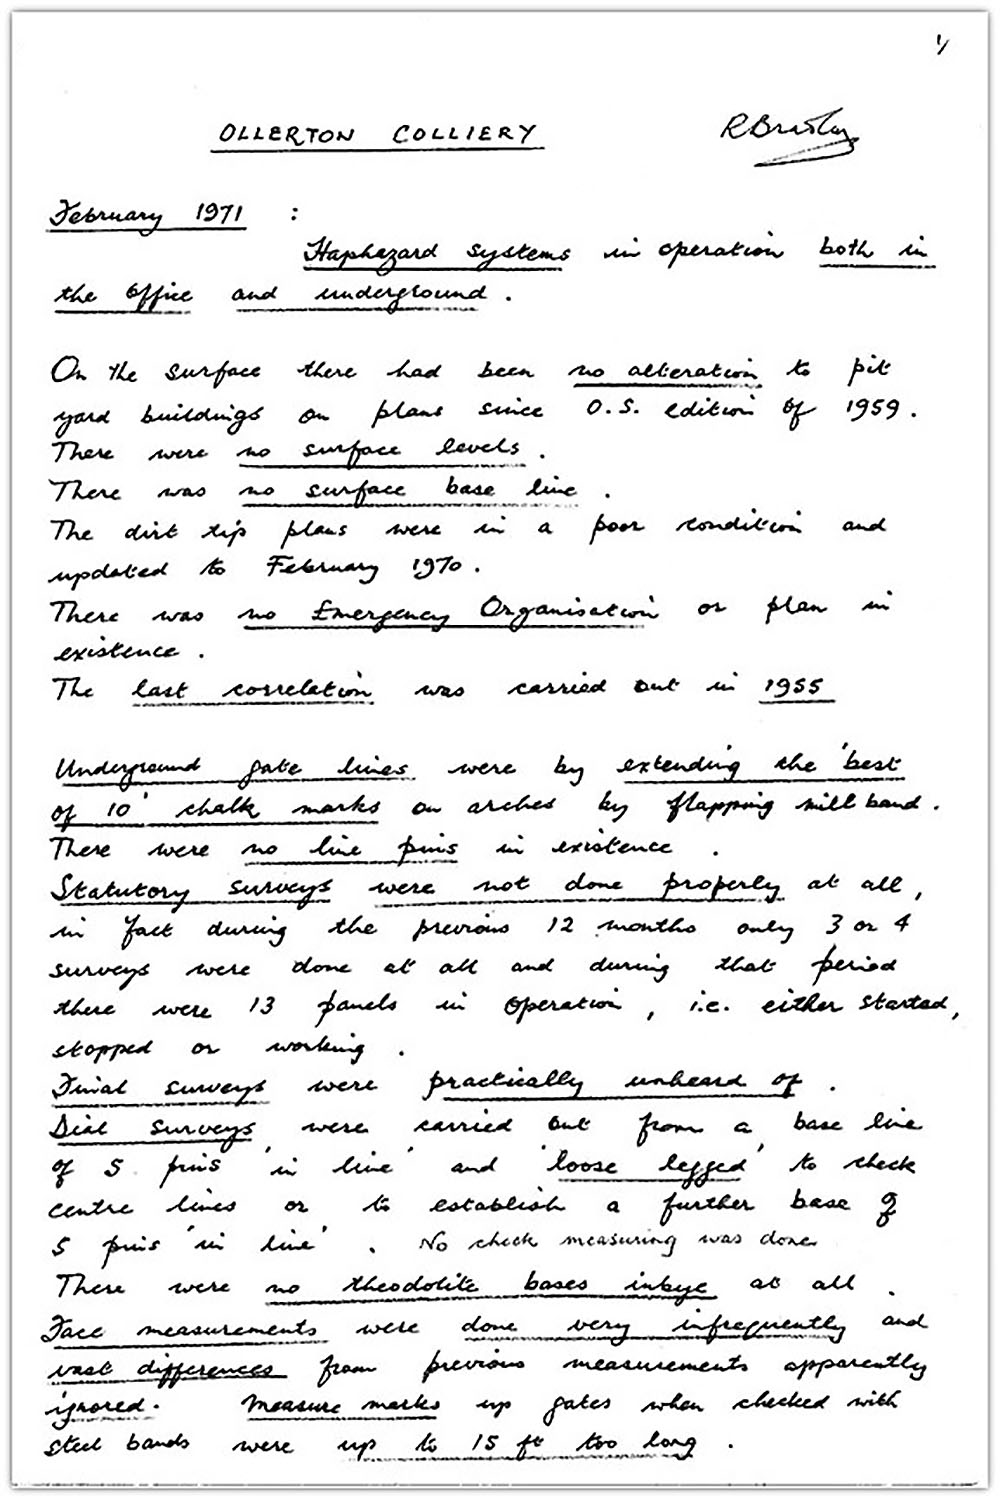 1/
OLLERTON COLLIERY
R Bradley
February 1971 :
Haphazard systems in operation both in
the office and underground .
On the surface there had been no alteration to pit
yard buildings on plans since O.S. edition of 1959 .
There were no surface levels .
There was no surface base line .
The dirt tip plans were in a poor condition and
updated to February 1970 .
There was no Emergency Organisation or plan in
existence .
The last correlation was carried out in 1955
Underground gate lines were by extending the 'best
of 10' chalk marks on arches by flapping mill band .
There were no line pins in existence .
Statutory surveys were not done properly at all ,
in fact during the previous 12 months only 3 or 4
surveys were done at all and during that period
there were 13 panels in operation , i.e. either started ,
stopped or working .
Final surveys were practically unheard of .
Dial surveys were carried out from a base line
of 5 pins 'in line' and 'loose legged' to check
centre lines or to establish a further base of
5 pins 'in line' . No check measuring was done
There were no theodolite bases inbye at all .
Face measurements were done very infrequently and
vast differences from previous measurements apparently
ignored . Measure marks up gates when checked with
steel bands were up to 15 ft too long .